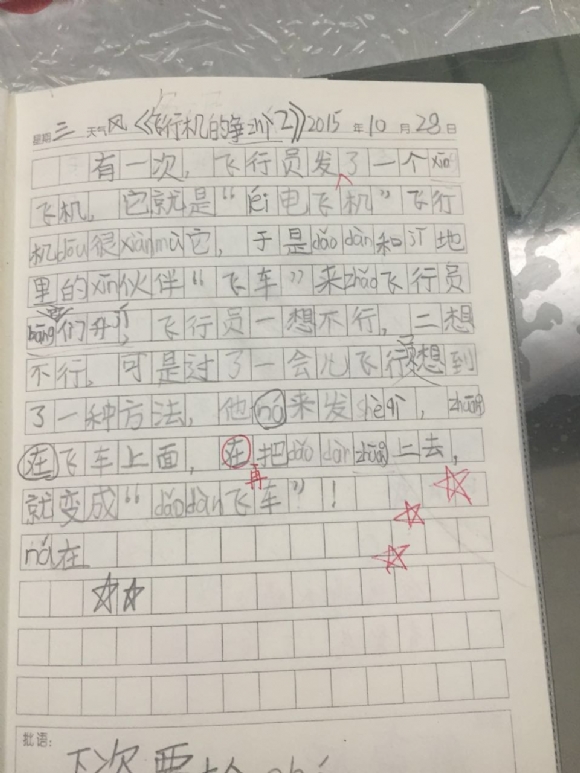 星期 三 天气 风 《飞行机的争zhí2》2015 年 10 月 28 日
有一次，飞行员发了一个xīn
飞机，它就是“léi电飞机”飞行
机dōu很xiànmù它，于是dǎodàn和地
里的xīn伙伴“飞车”来zhǎo飞行员
bāng们，飞行员一想不行，二想
不行，可是过了一会儿飞行员想到
了一种方法，他ná来发shèqì，zhuāng
在飞车上面，在把dǎodàn zhuāng上去，
再
就变成“dǎodàn飞车”！
ná在
批语：
下次要